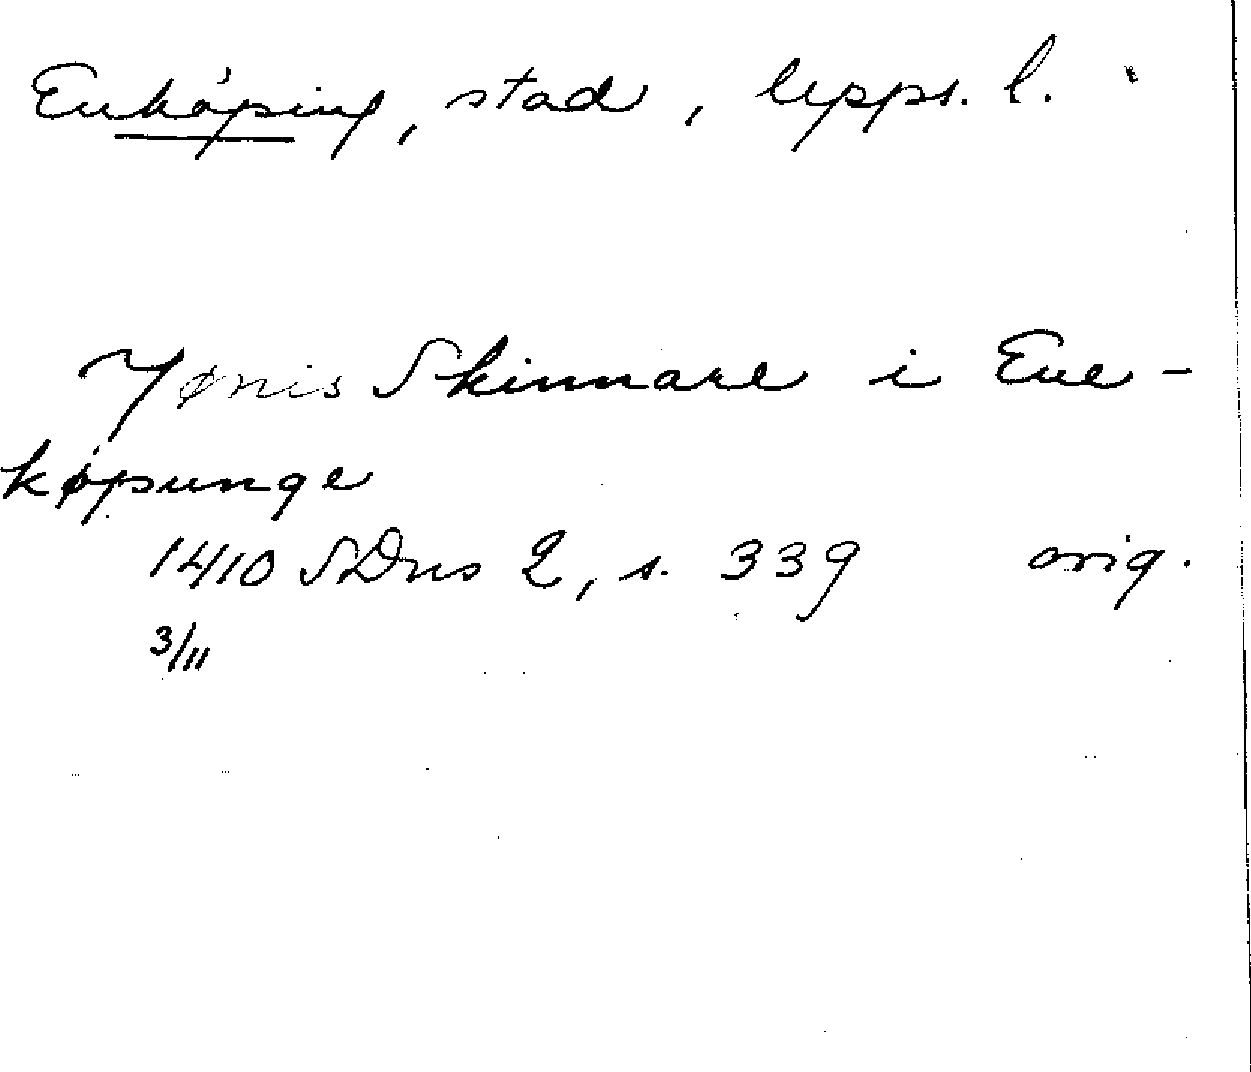 Enköping, stad, Upps. l.
Jønis Skinnare i Ene-
køpunge
1410 SDns 2, s. 339 orig.
3/11